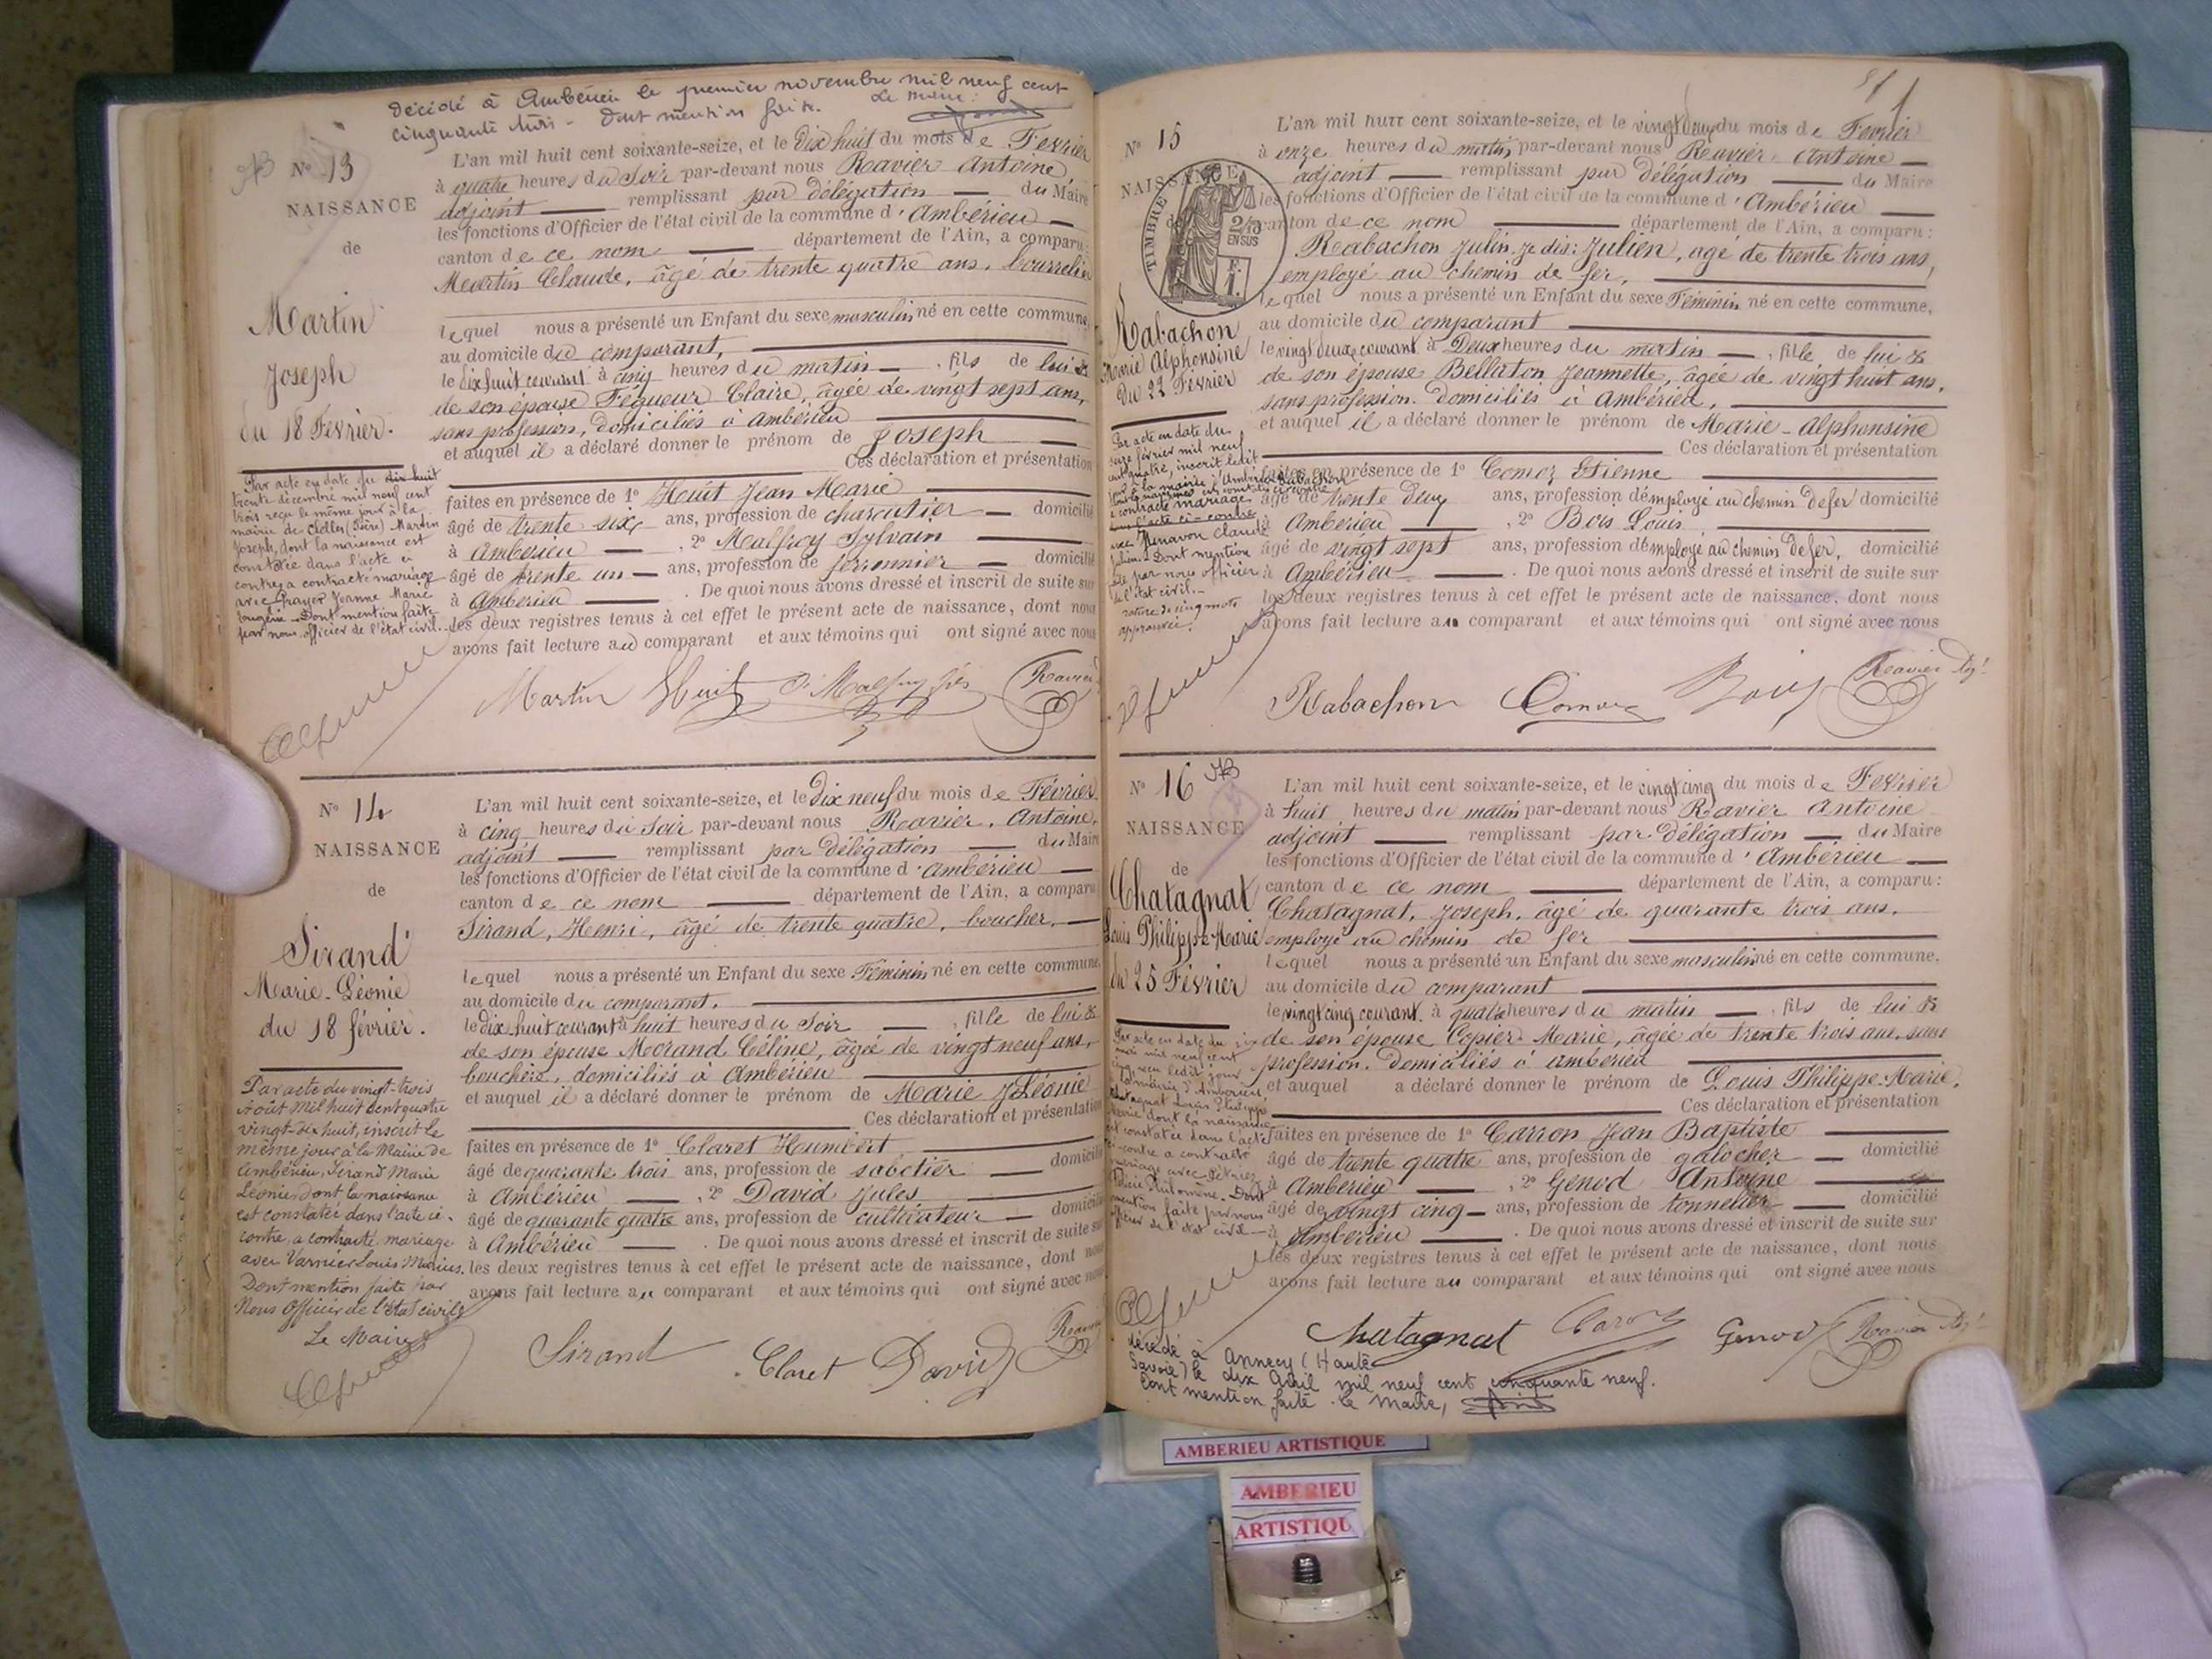 Décédé à Ambérieu le premier novembre mil neuf cent
cinquante trois - Dont mention faite. Le maire:
N° 13
NAISSANCE
de
Martin
Joseph
du 18 Février.
Par acte en date du dix huit
trente décembre mil neuf cent
trois reçu le même jour à la
mairie de (Isère) Martin
Joseph, dont la naissance est
constatée dans l'acte ci
contre a contracté mariage
avec Jeanne Marie
Dont mention faite
par nous officier de l'état civil.
L'an mil huit cent soixante-seize, et le Dix huit du mois de Fevrier
à quatre heures du Soir par-devant nous Ravier Antoine,
adjoint remplissant par délégation du Maire
les fonctions d'Officier de l'état civil de la commune d'Ambérieu
canton de ce nom département de l'Ain, a comparu:
Martin Claude, âgé de trente quatre ans, bourrelier
lequel nous a présenté un Enfant du sexe masculin né en cette commune,
au domicile du comparant,
le dix huit courant à cinq heures du matin , fils de lui &
de son épouse Féqueur Claire, âgée de vingt sept ans,
sans profession, domiciliés à Ambérieu
et auquel il a déclaré donner le prénom de Joseph
Ces déclaration et présentation
faites en présence de 1° Huit Jean Marie
âgé de trente six ans, profession de charcutier domicilié
à Amberieu , 2° Malfroy Sylvain
âgé de trente un ans, profession de ferronnier domicilié
à Amberieu . De quoi nous avons dressé et inscrit de suite sur
les deux registres tenus à cet effet le présent acte de naissance, dont nous
avons fait lecture au comparant et aux témoins qui ont signé avec nous
Martin Huit Ravier
N° 14
NAISSANCE
de
Sirand
Marie-Léonie
du 18 février.
Par acte du vingt-trois
Août Mil huit cent quatre
vingt-dix huit, inscrit le
même jour à la Mairie de
Ambérieu, Sirand Marie
Léonie, dont la naissance
est constatée dans l'acte ci-
contre, a contracté mariage
avec Varnier Louis Marius.
Dont mention faite par
Nous Officier de l'état civil
Le Maire
L'an mil huit cent soixante-seize, et le Dix neuf du mois de Février
à cinq heures du Soir par-devant nous Ravier, Antoine,
adjoint remplissant par délégation du Maire
les fonctions d'Officier de l'état civil de la commune d'Ambérieu
canton de ce nom département de l'Ain, a comparu
Sirand, Henri, âgé de trente quatre, boucher,
lequel nous a présenté un Enfant du sexe Féminin né en cette commune
au domicile du comparant.
le dix huit courant à huit heures du Soir , fille de lui &
de son épouse Morand Céline, âgée de vingt neuf ans,
bouchère, domiciliés à Ambérieu
et auquel il a déclaré donner le prénom de Marie Léonie
Ces déclaration et présentation
faites en présence de 1° Claret Humbert
âgé de quarante trois ans, profession de sabotier domicilié
à Ambérieu , 2° David Jules
âgé de quarante quatre ans, profession de cultivateur domicilié
à Ambérieu . De quoi nous avons dressé et inscrit de suite sur
les deux registres tenus à cet effet le présent acte de naissance, dont nous
avons fait lecture au comparant et aux témoins qui ont signé avec nous
Sirand Claret David Ravier
N° 15
NAISSANCE
de
TIMBRE
2/10
EN SUS
Rabachon
Marie Alphonsine
du 22 Février
Par acte en date du
seize février mil neuf
cent quatre, inscrit ledit
jour à la mairie d'Ambérieu Rabachon
a contracté mariage
l'acte ci-contre
avec Claude
Julien. Dont mention
faite par nous officier
de l'état civil.
rature de cinq mots
approuvée.
L'an mil huit cent soixante-seize, et le vingt deux du mois de Fevrier
à onze heures du matin par-devant nous Ravier, Antoine
adjoint remplissant par délégation du Maire
les fonctions d'Officier de l'état civil de la commune d'Ambérieu
canton de ce nom département de l'Ain, a comparu:
Rabachon Julin, je dis: Julien, âgé de trente trois ans,
employé au chemin de fer,
lequel nous a présenté un Enfant du sexe Féminin né en cette commune,
au domicile du comparant
le vingt deux courant à Deux heures du matin , fille de lui &
de son épouse Bellaton Jeannette, âgée de vingt huit ans,
sans profession. domiciliés à Ambérieu,
et auquel il a déclaré donner le prénom de Marie-Alphonsine
Ces déclaration et présentation
faites en présence de 1° Comoz Etienne
âgé de trente deux ans, profession d'employé au chemin de fer domicilié
à Amberieu , 2° Bois Louis
âgé de vingt sept ans, profession d'employé au chemin de fer, domicilié
à Ambérieu . De quoi nous avons dressé et inscrit de suite sur
les deux registres tenus à cet effet le présent acte de naissance, dont nous
avons fait lecture au comparant et aux témoins qui ont signé avec nous
Rabachon Comoz Bois Ravier adj.
N° 16
NAISSANCE
de
Chatagnat
Louis Philippe-Marie
du 25 Février
Par acte en date du
mai mil neuf cent
cinq reçu ledit jour
à la mairie d'Amberieu,
Chatagnat Louis Philippe
Marie dont la naissance
est constatée dans l'acte
ci-contre a contracté
mariage avec
Philomène. Dont
mention faite par nous
officier de l'état civil
L'an mil huit cent soixante-seize, et le vingt cinq du mois de Février
à huit heures du matin par-devant nous Ravier Antoine
adjoint remplissant par délégation du Maire
les fonctions d'Officier de l'état civil de la commune d'Ambérieu
canton de ce nom département de l'Ain, a comparu:
Chatagnat, Joseph, âgé de quarante trois ans,
employé au chemin de fer
lequel nous a présenté un Enfant du sexe masculin né en cette commune,
au domicile du comparant
le vingt cinq courant à quatre heures du matin , fils de lui &
de son épouse Copier Marie, âgée de trente trois ans, sans
profession. domiciliés à Ambérieu
et auquel a déclaré donner le prénom de Louis Philippe-Marie.
Ces déclaration et présentation
faites en présence de 1° Carron Jean Baptiste
âgé de trente quatre ans, profession de galocher domicilié
à Ambérieu , 2° Genod Antoine
âgé de vingt cinq ans, profession de tonnelier domicilié
à Ambérieu . De quoi nous avons dressé et inscrit de suite sur
les deux registres tenus à cet effet le présent acte de naissance, dont nous
avons fait lecture au comparant et aux témoins qui ont signé avec nous
Chatagnat Genod Ravier adj.
décédé à Annecy (Haute
Savoie) le dix Avril mil neuf cent cinquante neuf.
Dont mention faite. Le Maire,
AMBERIEU ARTISTIQUE
AMBERIEU
ARTISTIQU